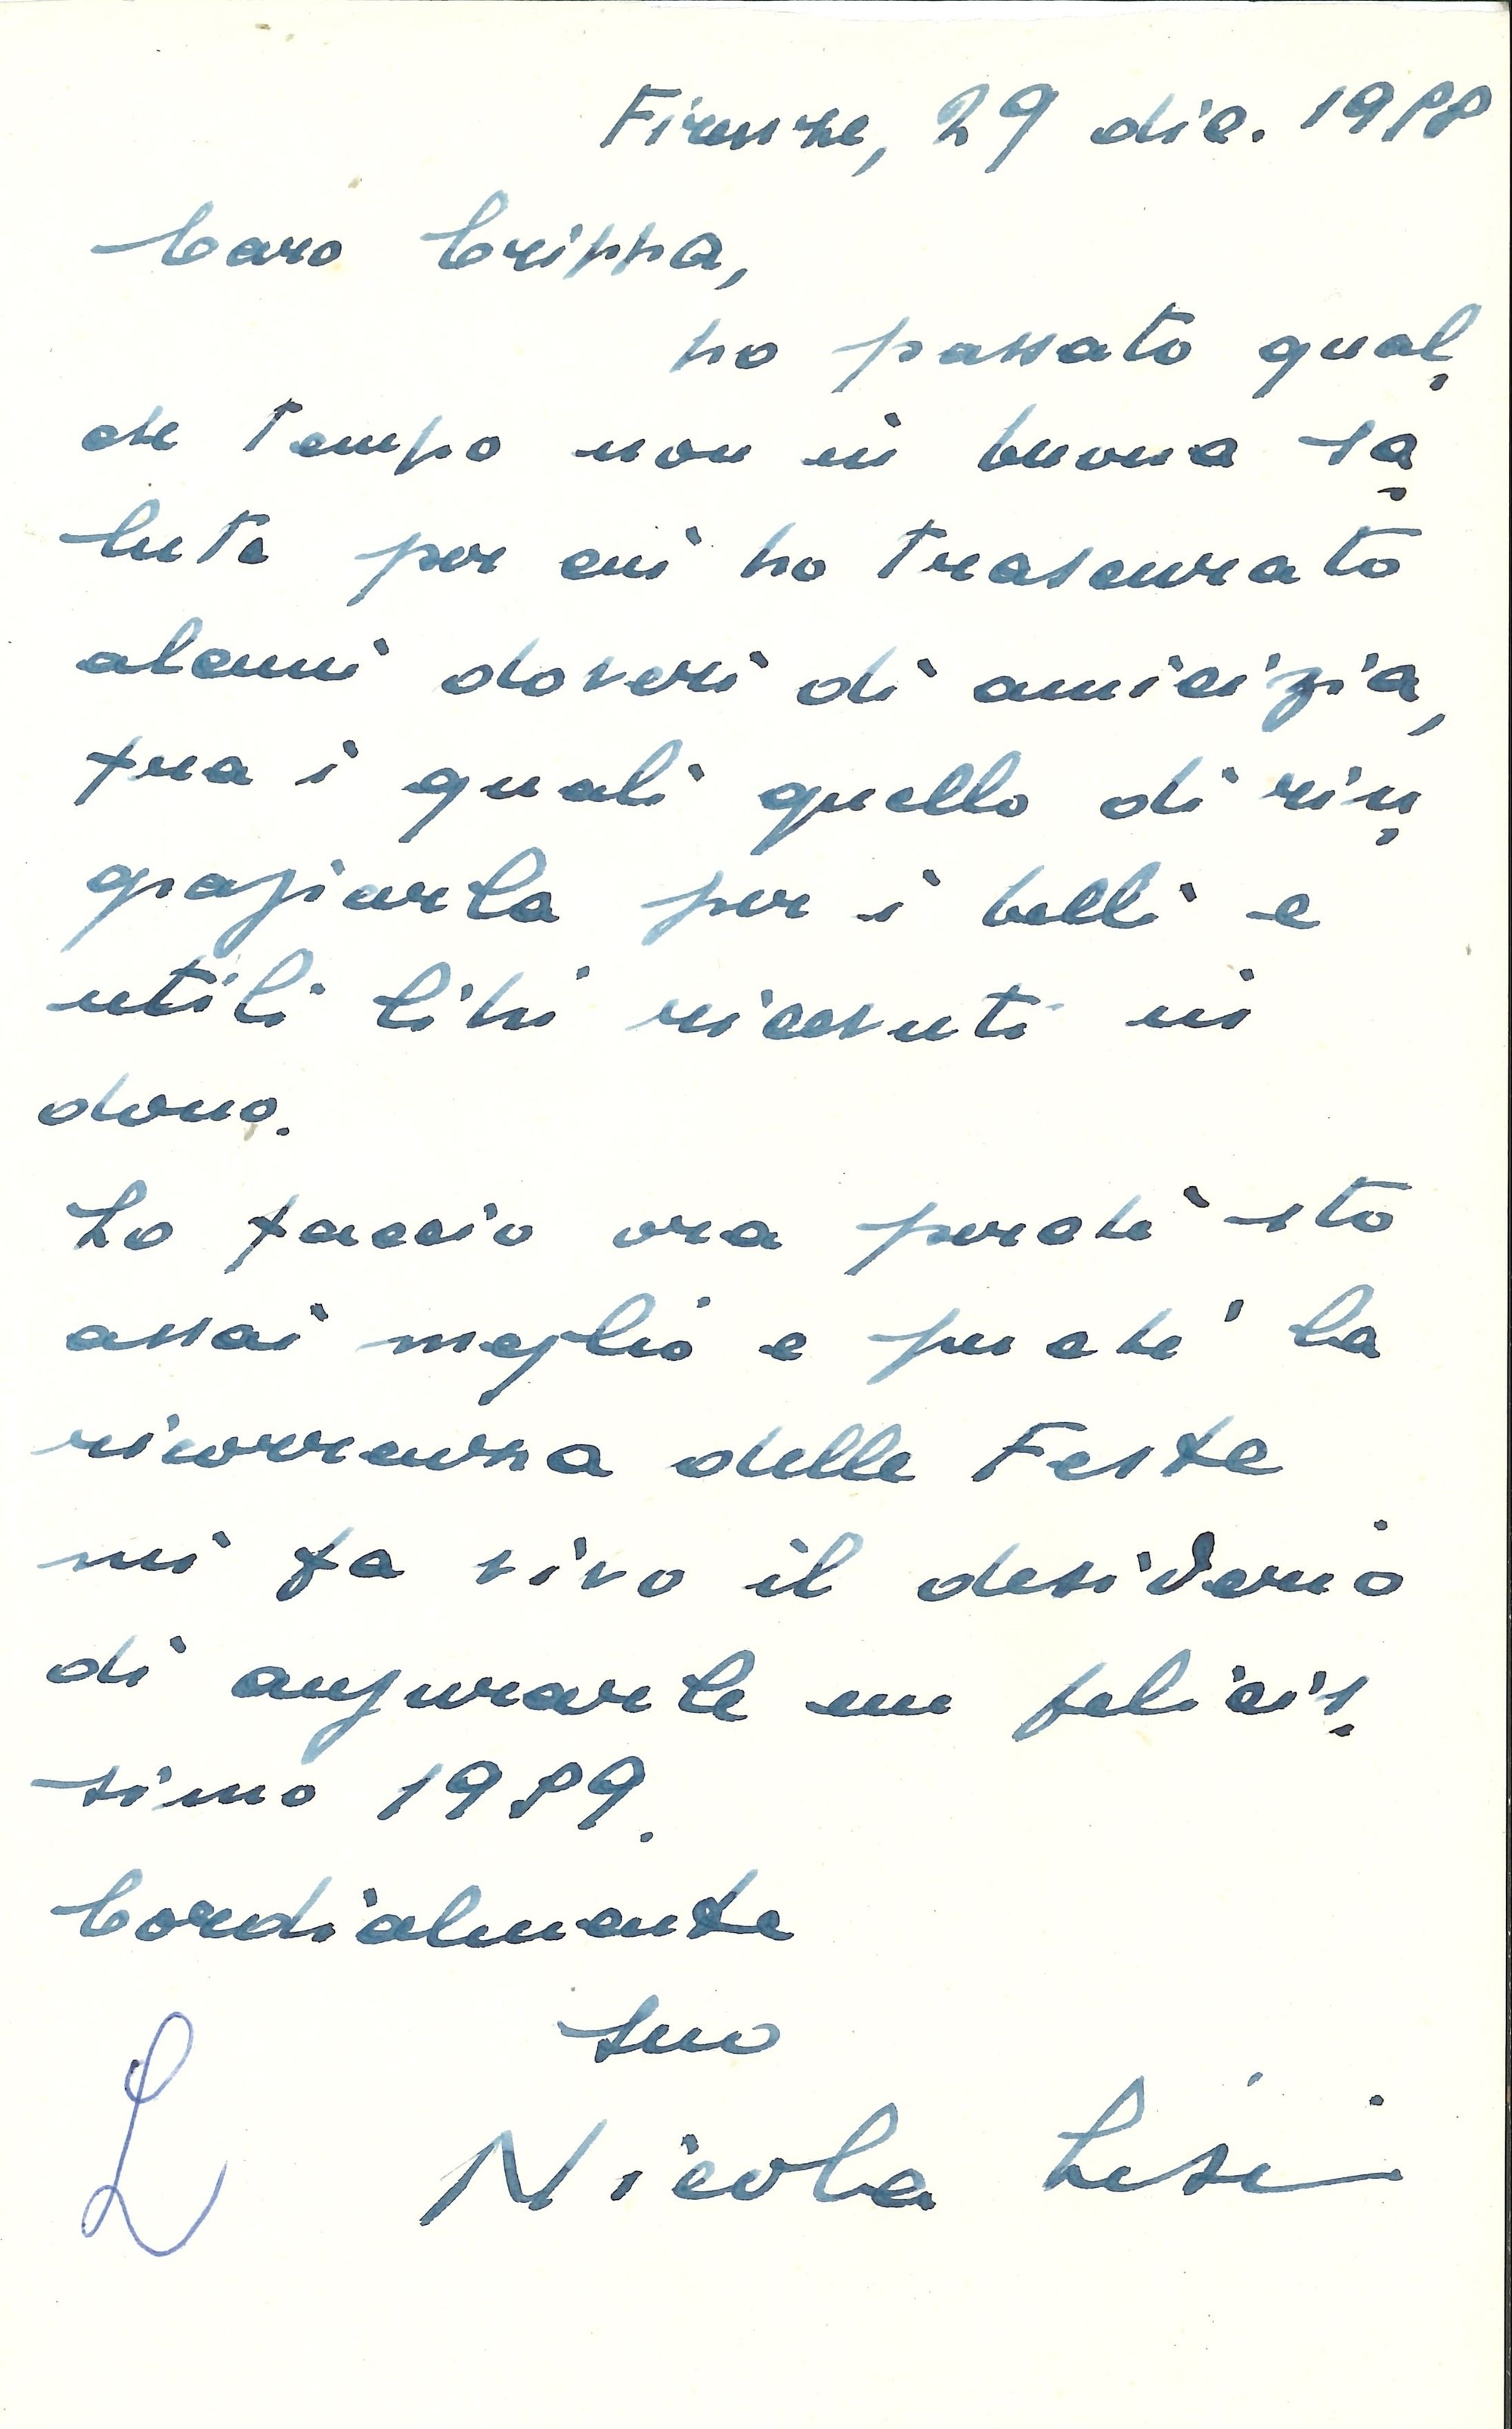 Firenze, 29 dic. 1988
Caro Crippa,
ho passato qual
che tempo non in buona sa
lute per cui ho trascurato
alcuni doveri di amicizia,
fra i quali quello di rin
graziarla per i belli e
utili libri ricevuti in
dono.
Lo faccio ora perchè sto
assai meglio e perché la
ricorrenza delle Feste
mi fa vivo il desiderio
di augurarle un felicis
simo 1989.
Cordialmente
suo
Nicola Lisi
L